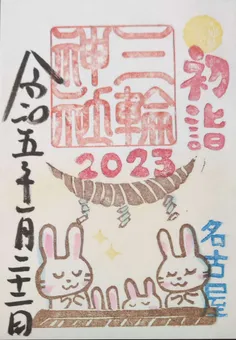 初詣
三輪
神社
2023
名古屋
令和五年一月二十二日